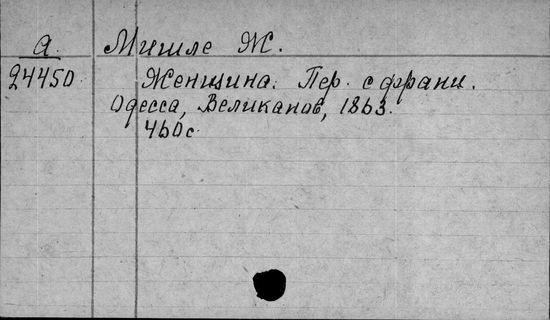 А. Мишле Ж.
24450. Женщина. Пер. с франц.
Одесса, Великанов, 1863.
460с.